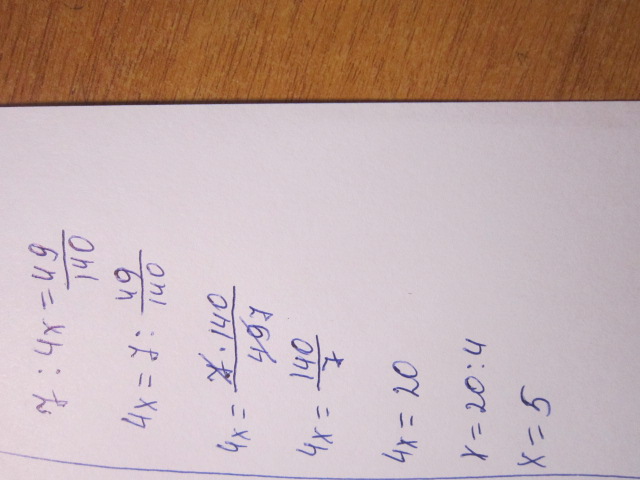 7 : 4x = 49/140
4x = 7 : 49/140
4x = 7·140/49 7
4x = 140/7
4x = 20
x = 20:4
x = 5